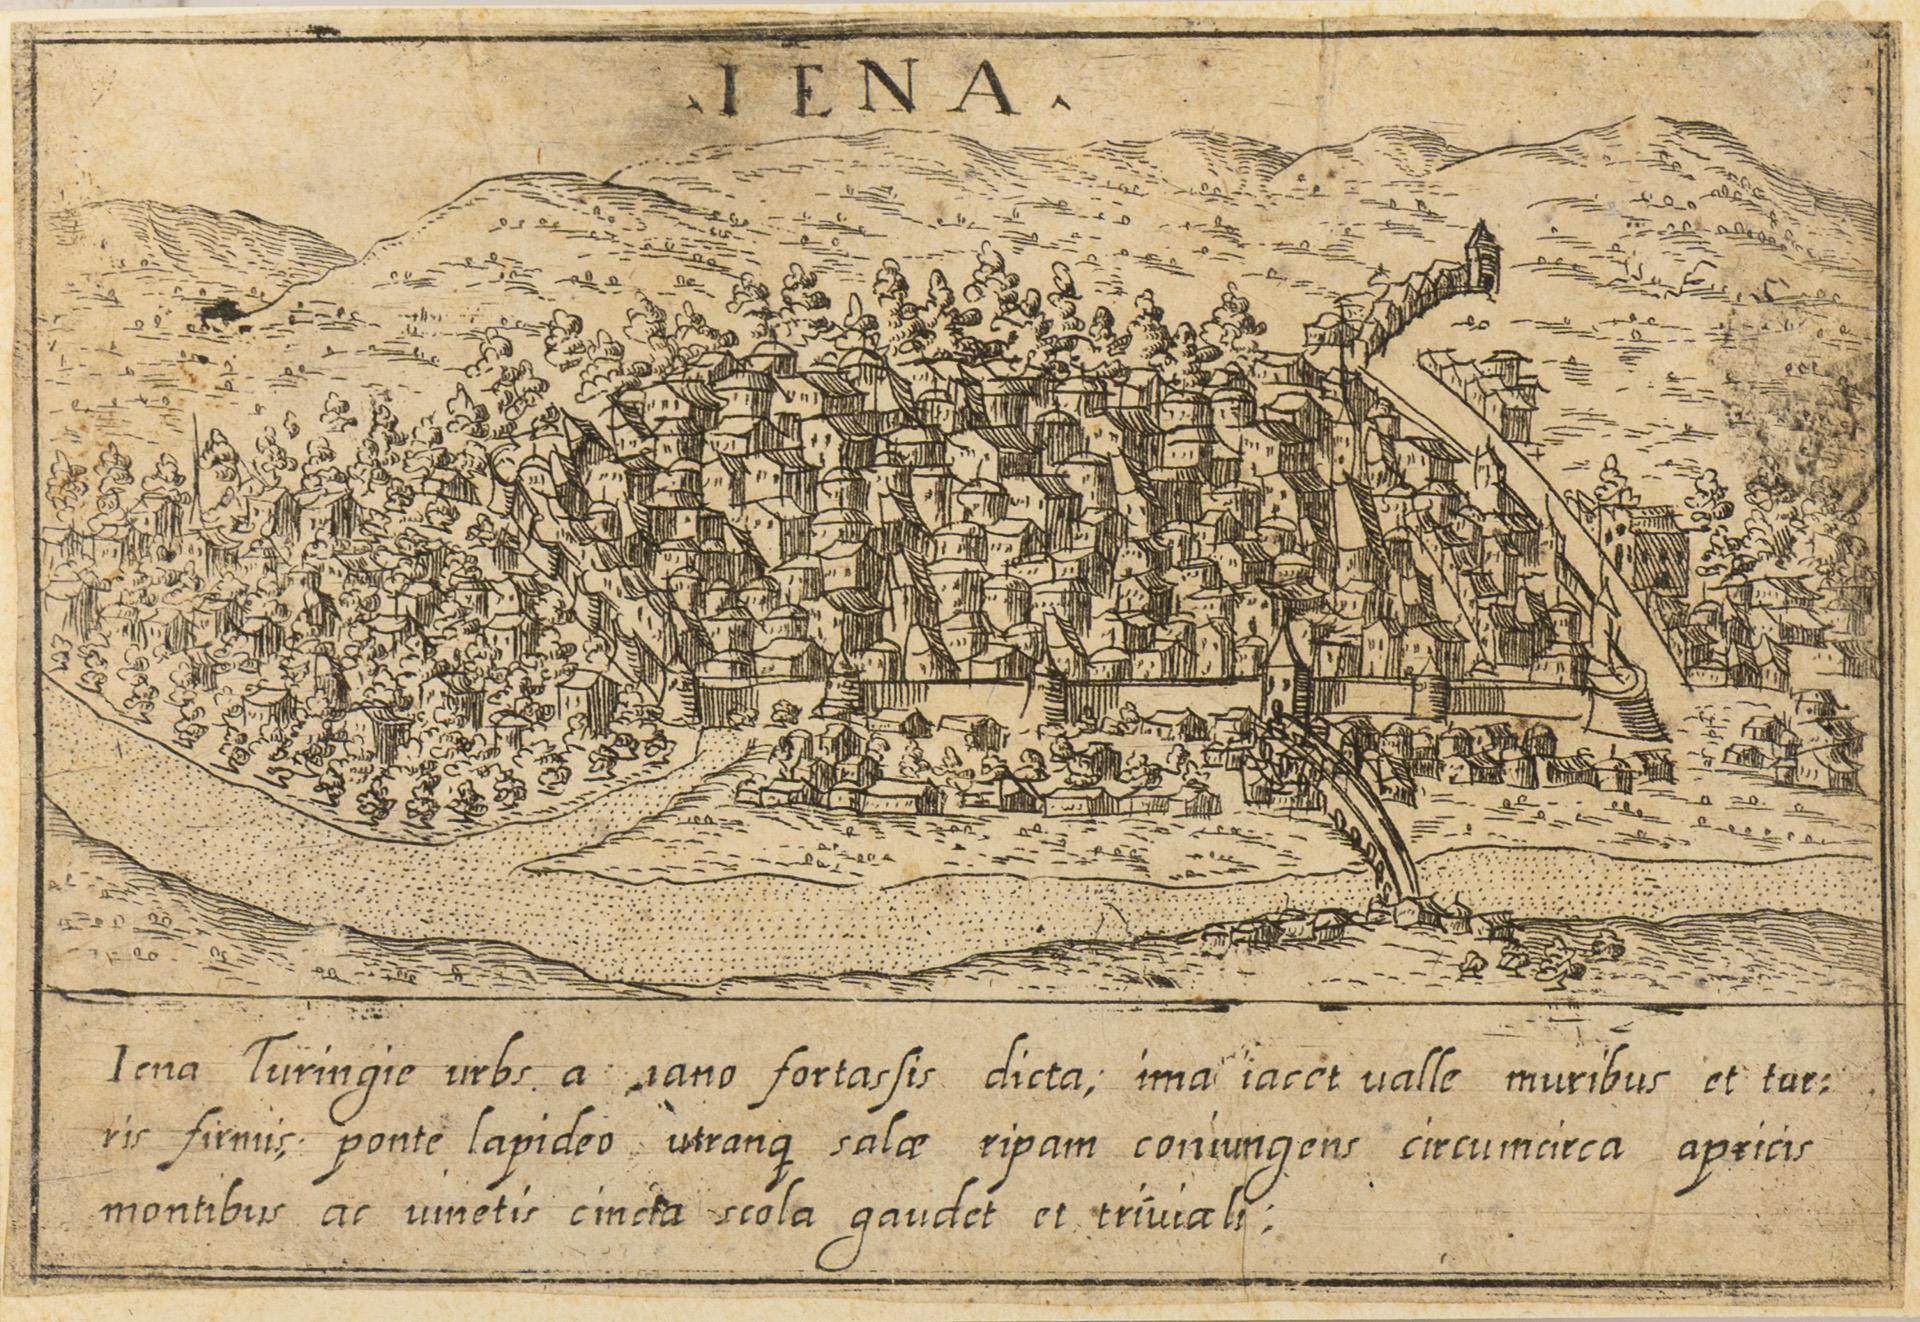 IENA
Iena Turingie urbs a iano fortassis dicta; ima iacet ualle muribus et tur:
ris firmis; ponte lapideo utranq salæ ripam coniungens circumcirca apricis
montibus ac uinetis cincta scola gaudet et triuiali;